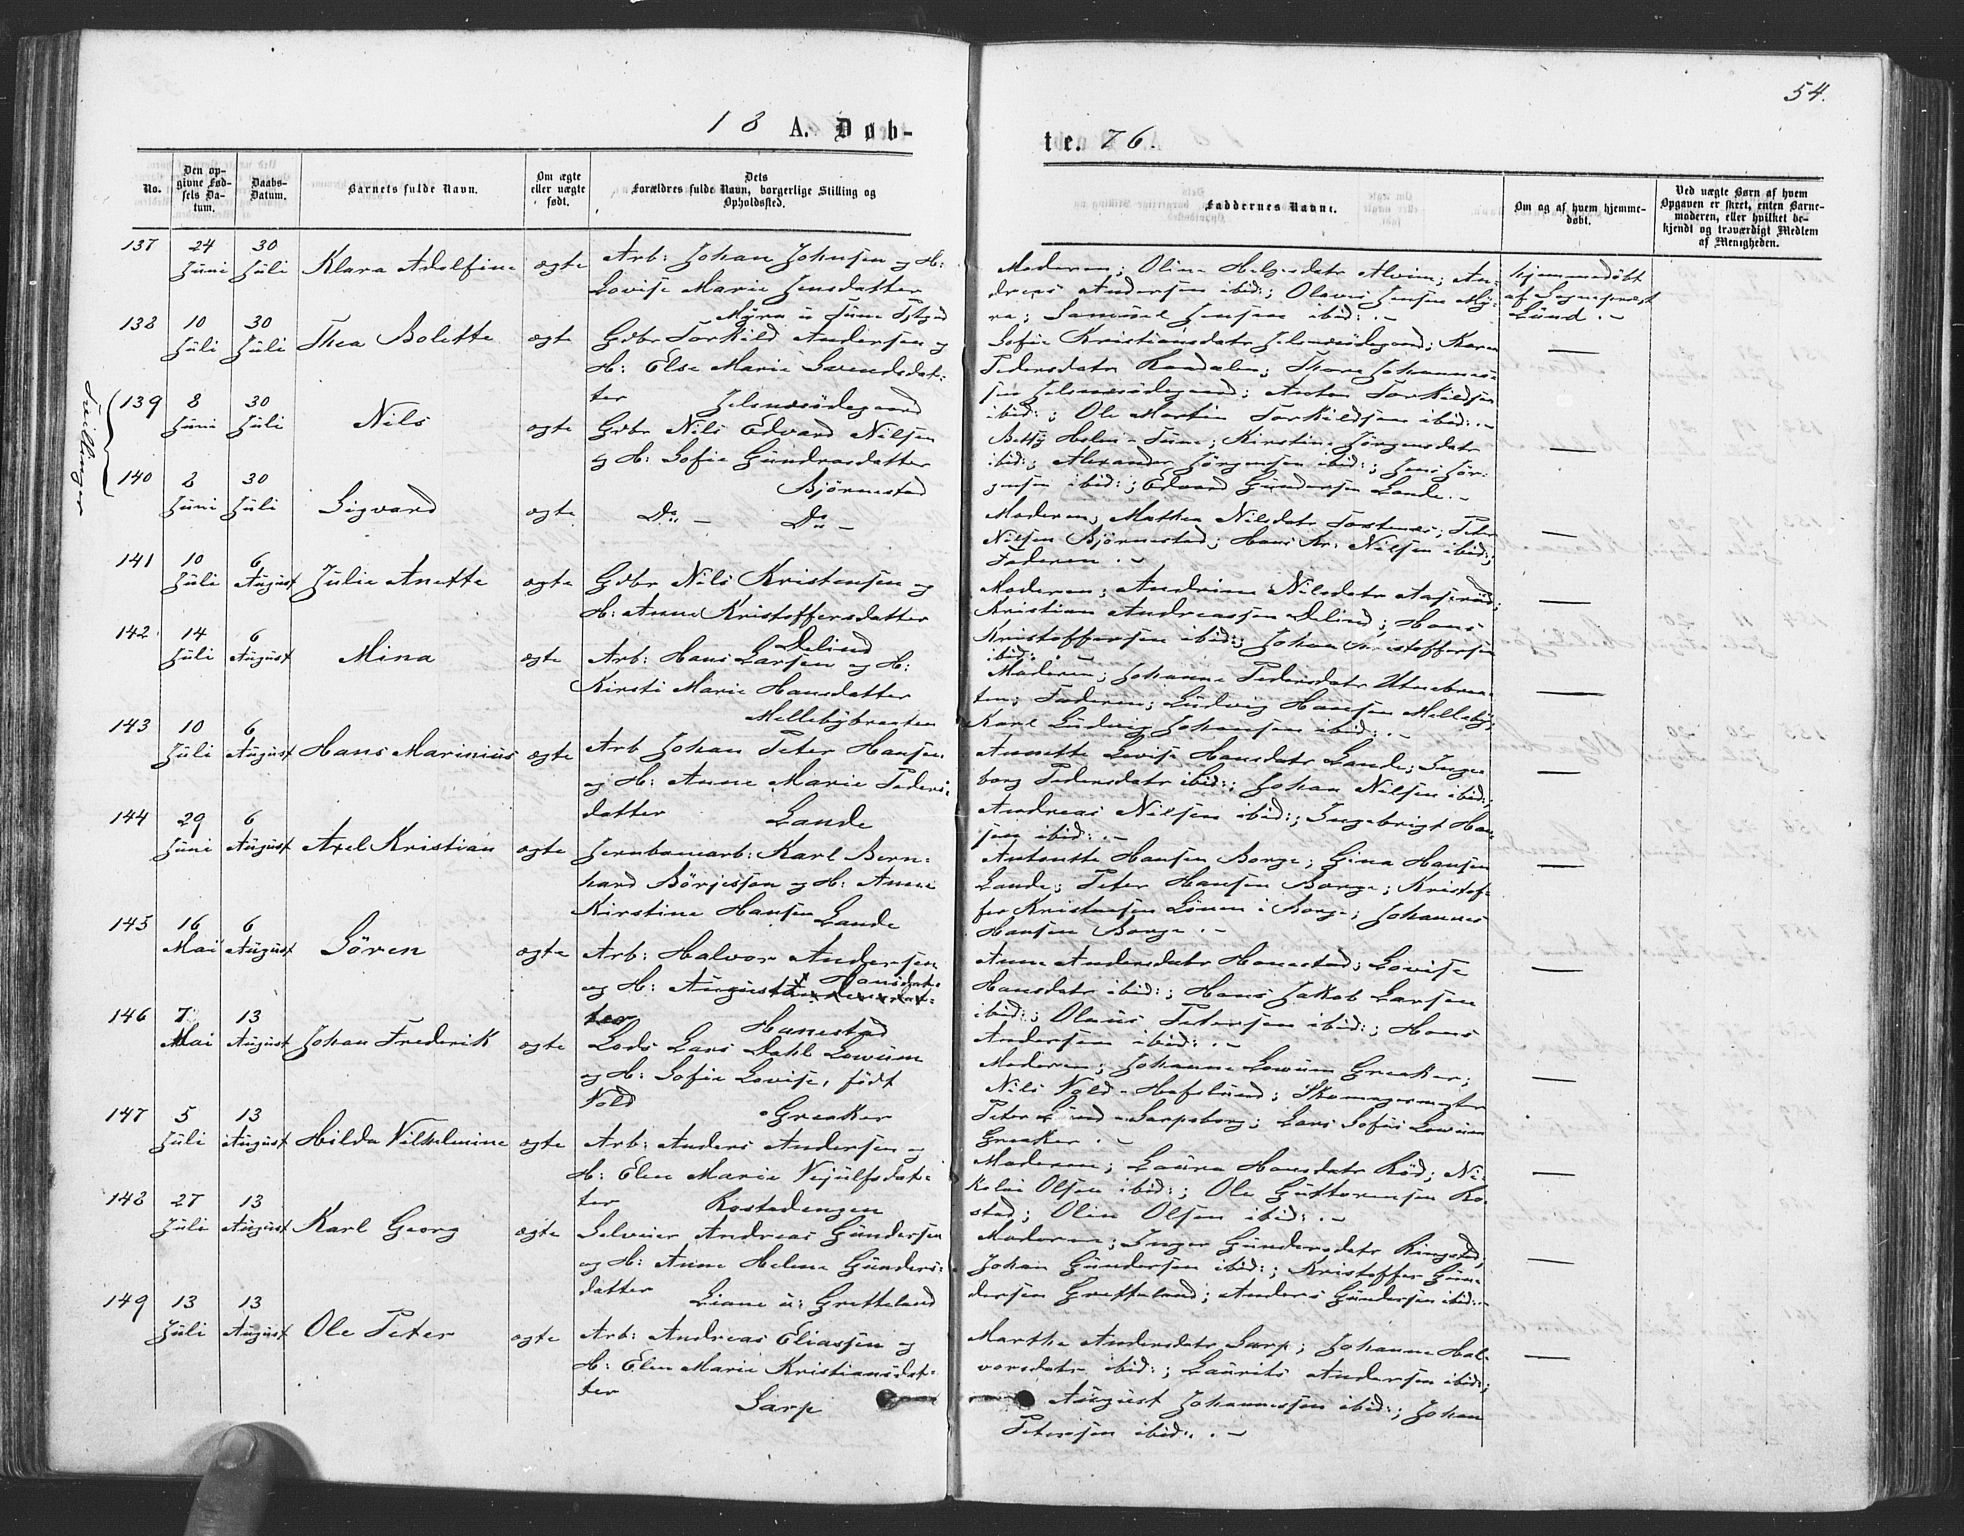 54.
18 A. Døb-
te. 76.
No.
Den op-
givne Fød-
sels Da-
tum.
Daabs-
Datum.
Barnets fulde Navn.
Om ægte
eller uægte
født.
Dets
Forældres fulde Navn, borgerlige Stilling og
Opholdssted.
Faddernes Navne.
Om og af hvem hjemme-
døbt.
Ved uægte Børn af hvem
Opgaven er skeet, enten Barne-
moderen, eller hvilket be-
kjendt og troværdigt Medlem
af Menigheden.
137 24 Juni 30 Juli Klara Adolfine ægte
Arb: Johan Johnsen og H:
Lovise Marie Jensdatter
Myra u: Tune
Moderen; Oline Helgesdatr Alvim; An-
dreas Andersen ibid:; Olavus Jensen My-
ra; Samuel Jensen ibid: .-
hjemmedøbt
af Sognepræst
Lund .-
138 10 Juli 30 Juli Thea Bolette ægte
Gdbr Torkild Andersen og
H: Else Marie Svendsdat-
ter
Sofie Kristiansdatr; Karen
Pedersdatr; Thore Johannes-
sen; Anton Torkildsen
ibid:; Ole Martin Torkildsen ibid: .-
Tvillinger
139 8 Juni 30 Juli Nils ægte
Gdbr Nils Edvard Nilsen
og H: Sofie Gundrosdatter
Bjørnestad
Betty Holm - Tune; Kirstine Jørgensdatr
ibid:; Alexander Jørgensen ibid:; Jens Jør-
gensen ibid:; Edvard Gundersen Lande .-
140 8 Juni 30 Juli Sigvard ægte
Do - Do -
Moderen; Mathea Nilsdatr; Peter
Nilsen Bjørnestad; Hans Kr: Nilsen ibid:;
Faderen .-
141 10 Juli 6 August Julie Anette ægte
Gdbr Nils Kristensen og
H: Anne Kristoffersdatter
Delind
Moderen; Andrine Nilsdatr;
Kristian Andreassen Delind; Hans
Kristoffersen ibid:; Johan Kristoffersen
ibid: .-
142 14 Juli 6 August Mina ægte
Arb: Hans Larsen og H:
Kirsti Marie Hansdatter
Mellebybraaten
Moderen; Johanne Pedersdatr Utnebraa-
ten; Faderen; Ludvig Hansen Melleby;
Karl Ludvig Johansen ibid: .-
143 10 Juli 6 August Hans Marinius ægte
Arb Johan Peter Hansen
og H: Anne Marie Peders-
datter Lande
Annette Lovise Hansdatr Lande; Inge-
borg Pedersdatr ibid:; Johan Nilsen ibid:;
Andreas Nilsen ibid:; Ingebrigt Han-
sen ibid: .-
144 29 Juni 6 August Axel Kristian ægte
Jernbanearb: Karl Bern-
hard Börjesson og H: Anne
Kirstine Hansen Lande
Antonette Hansen Borge; Gina Hansen
Lande; Peter Hansen Borge; Kristof-
fer Kristensen i Borge; Johannes
Hansen Borge .-
145 16 Mai 6 August Søren ægte
Arb: Halvor Andersen
og H: Augusta Hansdat-
ter Hanestad
Anne Andersdatr Hanestad; Lovise
Hansdatr ibid:; Hans Jakob Larsen
ibid:; Olaus Petersen ibid:; Hans
Andersen ibid: .-
146 7 Mai 13 August Johan Frederik ægte
Lods Lars Dahl Lowum
og H: Sofie Lovise, født
Vold Greaker
Moderen; Johanne Lowum Greaker;
Nils Vold - Hafslund; Skomagermester
Peter Lund - Sarpsborg; Lars Sofus Lowum
Greaker .-
147 5 Juli 13 August Hilda Vilhelmine ægte
Arb: Anders Andersen og
H: Elen Marie Vejulfsdat-
ter Rostadengen
Moderen; Laura Hansdatr Rød; Ni-
kolai Olsen ibid:; Ole Guttormsen Ro-
stad; Olin Olsen ibid: .-
148 27 Juli 13 August Karl Georg ægte
Selveier Andreas Gundersen
og H: Anne Helene Gunders-
datter Liane u: Gretteland
Moderen; Inger Gundersdatr Ringstad;
Johan Gundersen ibid:; Kristoffer Gun-
dersen Gretteland; Anders Gundersen ibid: .-
149 13 Juli 13 August Ole Peter ægte
Arb: Andreas Eliassen og
H: Elen Marie Kristiansdat-
ter Sarp
Martha Andersdatr Sarp; Johanne Hal-
vorsdatr ibid:; Laurits Andersen ibid:;
August Johannessen ibid:; Johan
Petersen ibid: .-